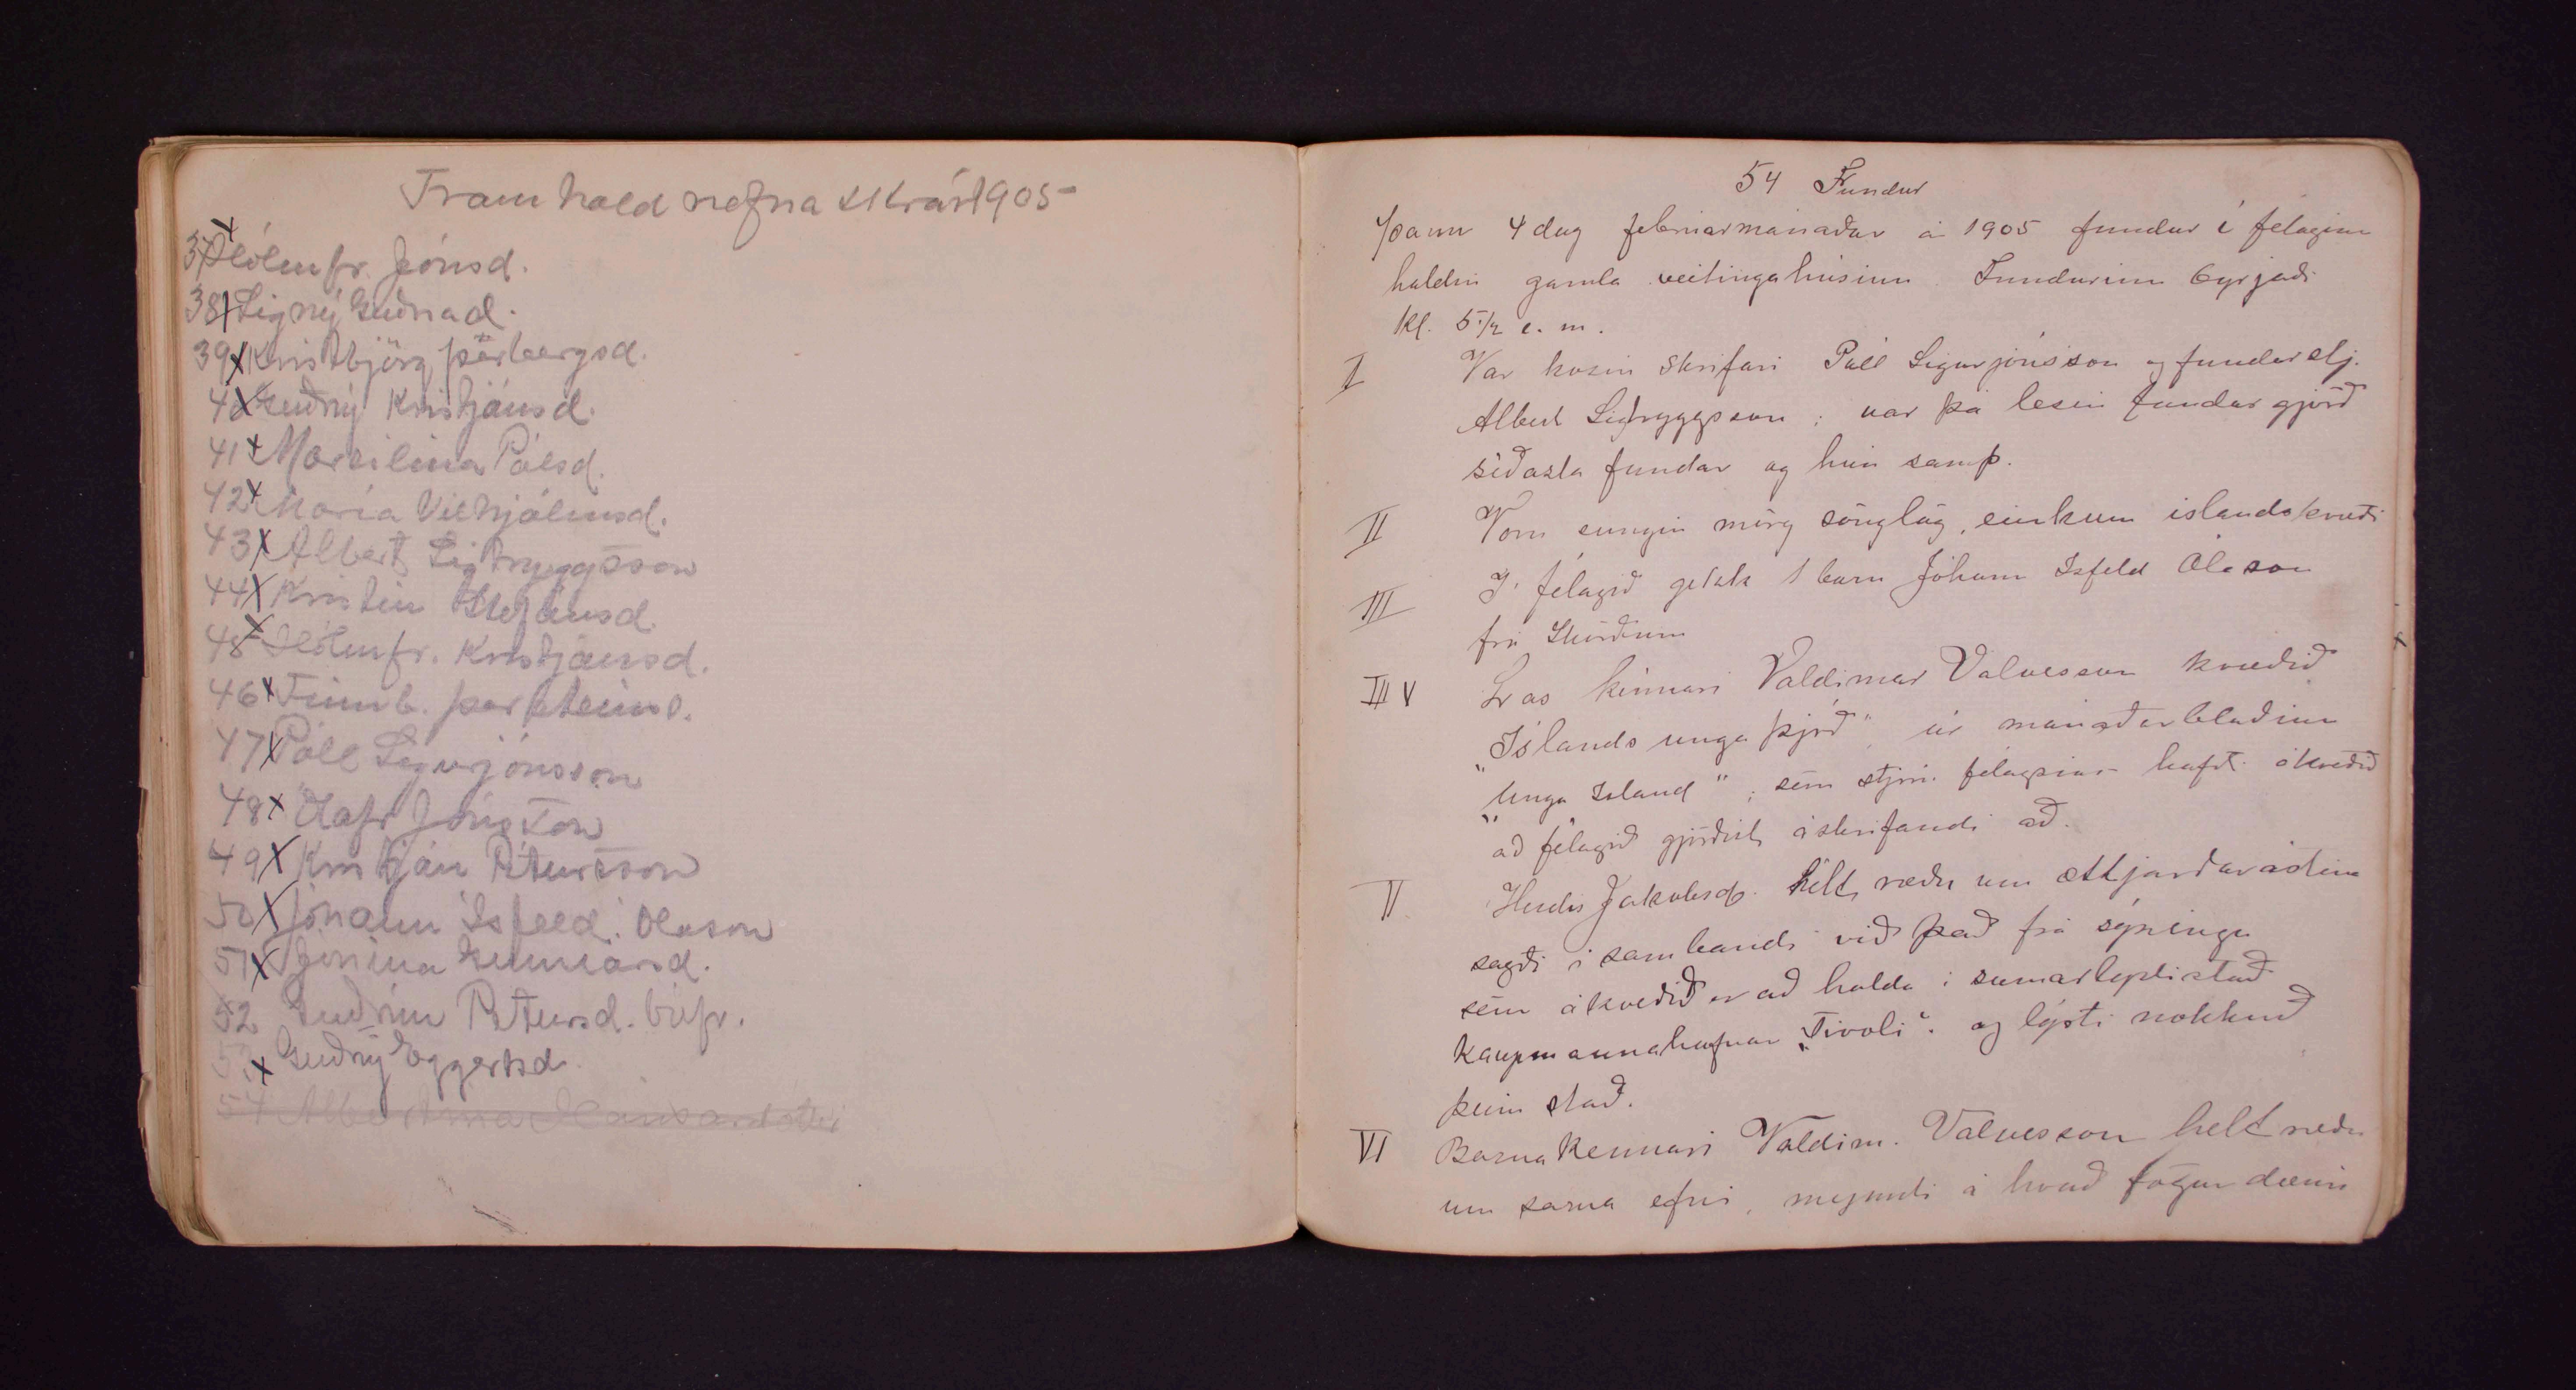 Framhald nafna skrár 1905
37 x Hólmfr. Jónsd.
38 x Signý Guðnad.
39 x Kristbjörg Þorbergsd.
40 x Guðný Kristjánsd.
41 x Marsilína Pálsd.
42 x María Vilhjálmsd.
43 x Albert Sigtryggsson
44 x Kristín Stefánsd.
45 x Hólmfr. Kristjánsd.
46 x Finnb. Þorsteinss.
47 x Páll Sigurjónsson
48 x Ólafr Jónsson
49 x Kristján Pétursson
50 x Jóhann Ísfeld Ólason
51 x Jónína Gunnarsd.
52 Guðrún Pétursd. búfr.
53 x Guðný Eggertsd.
54 Albertína
54 Fundur
Þann 4 dag febrúarmánaðar á 1905 fundur í félaginu
haldin gamla veitingahúsinu. Fundurinn byrjaði
kl. 5 1/2 e. m.
I Var kosin skrifari Páll Sigurjónsson og fundarstj.
Albert Sigtryggsson; var þá lesin fundargjörð
síðasta fundar og hún samþ.
II Voru sungin mörg sönglög, einkum íslandskvæði
III Í félagið gekk 1 barn Jóhann Isfeld Ólason
frá Skörðum
IIIV Las kennari Valdimar Valvesson kvæðið
„Íslands unga þjóð", úr mánaðarblaðinu
„Unga Ísland"; sem stjórn félagsins hafði ákveðið
að félagið gjörðist áskrifandi að.
V Herdís Jakobsd. hélt ræðu um ættjarðarástina
sagði í sambandi við það frá sýningu
sem ákveðið er að halda í sumar á
kaupmannahafnar „Tivoli". og lýsti nokkuð
þeim stað.
VI Barnakennari Valdim. Valvesson helt ræðu
um sama efni, mynnti á hvað fögur dæmi